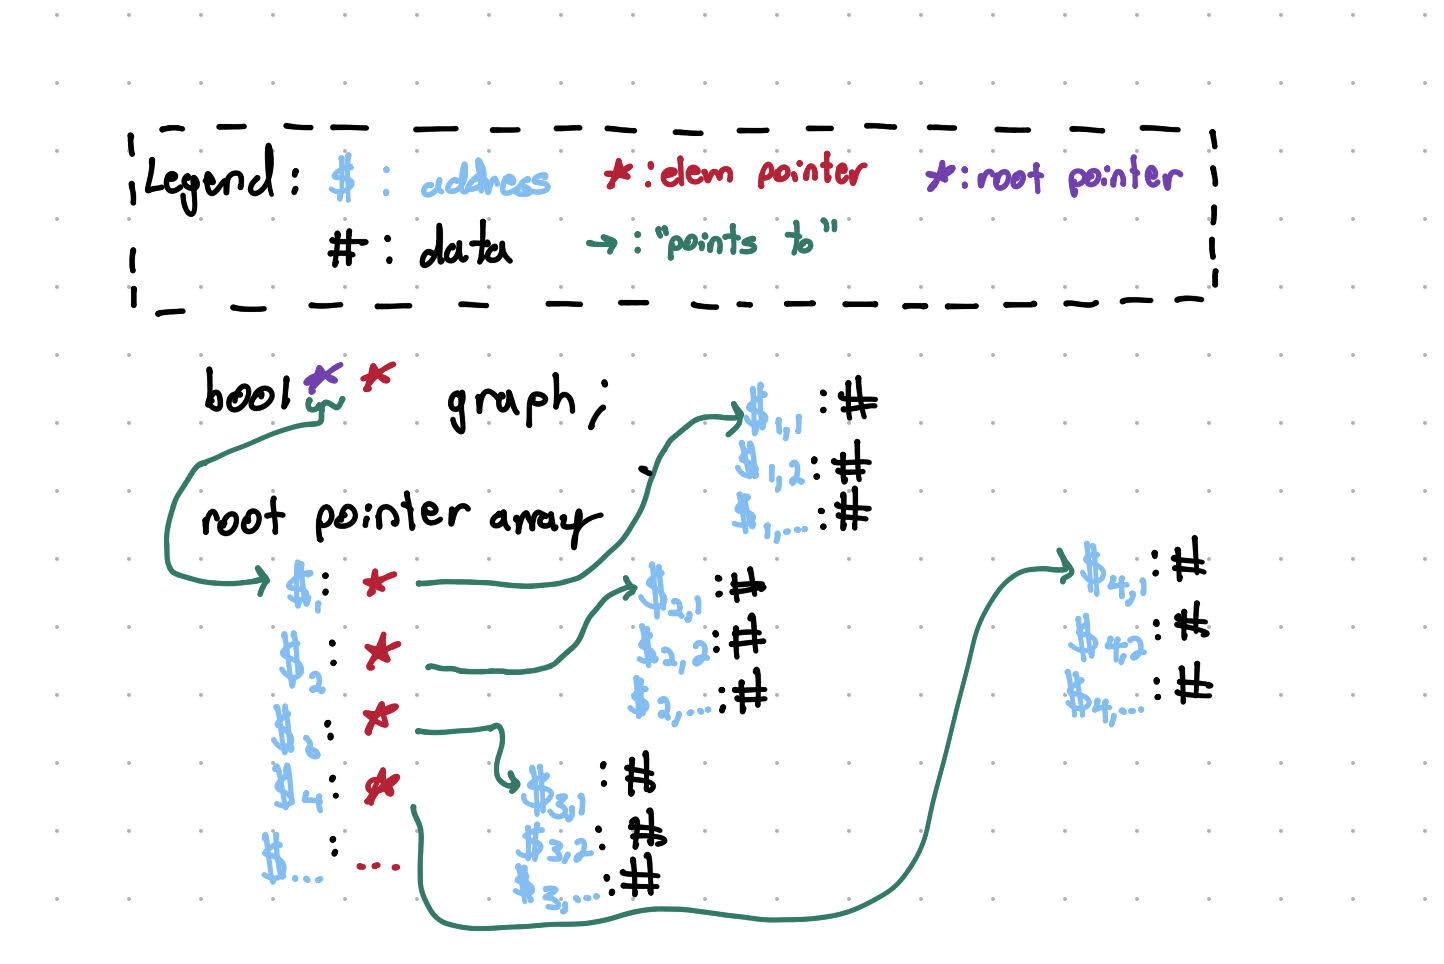 Legend: $ : address *: elem pointer *: root pointer
#: data →: "points to"
bool * * graph;
root pointer array
$1: *
$2: *
$3: *
$4: *
$...: ...
$1,1: #
$1,2: #
$1,...: #
$2,1: #
$2,2: #
$2,...: #
$3,1: #
$3,2: #
$3,...: #
$4,1: #
$4,2: #
$4,...: #